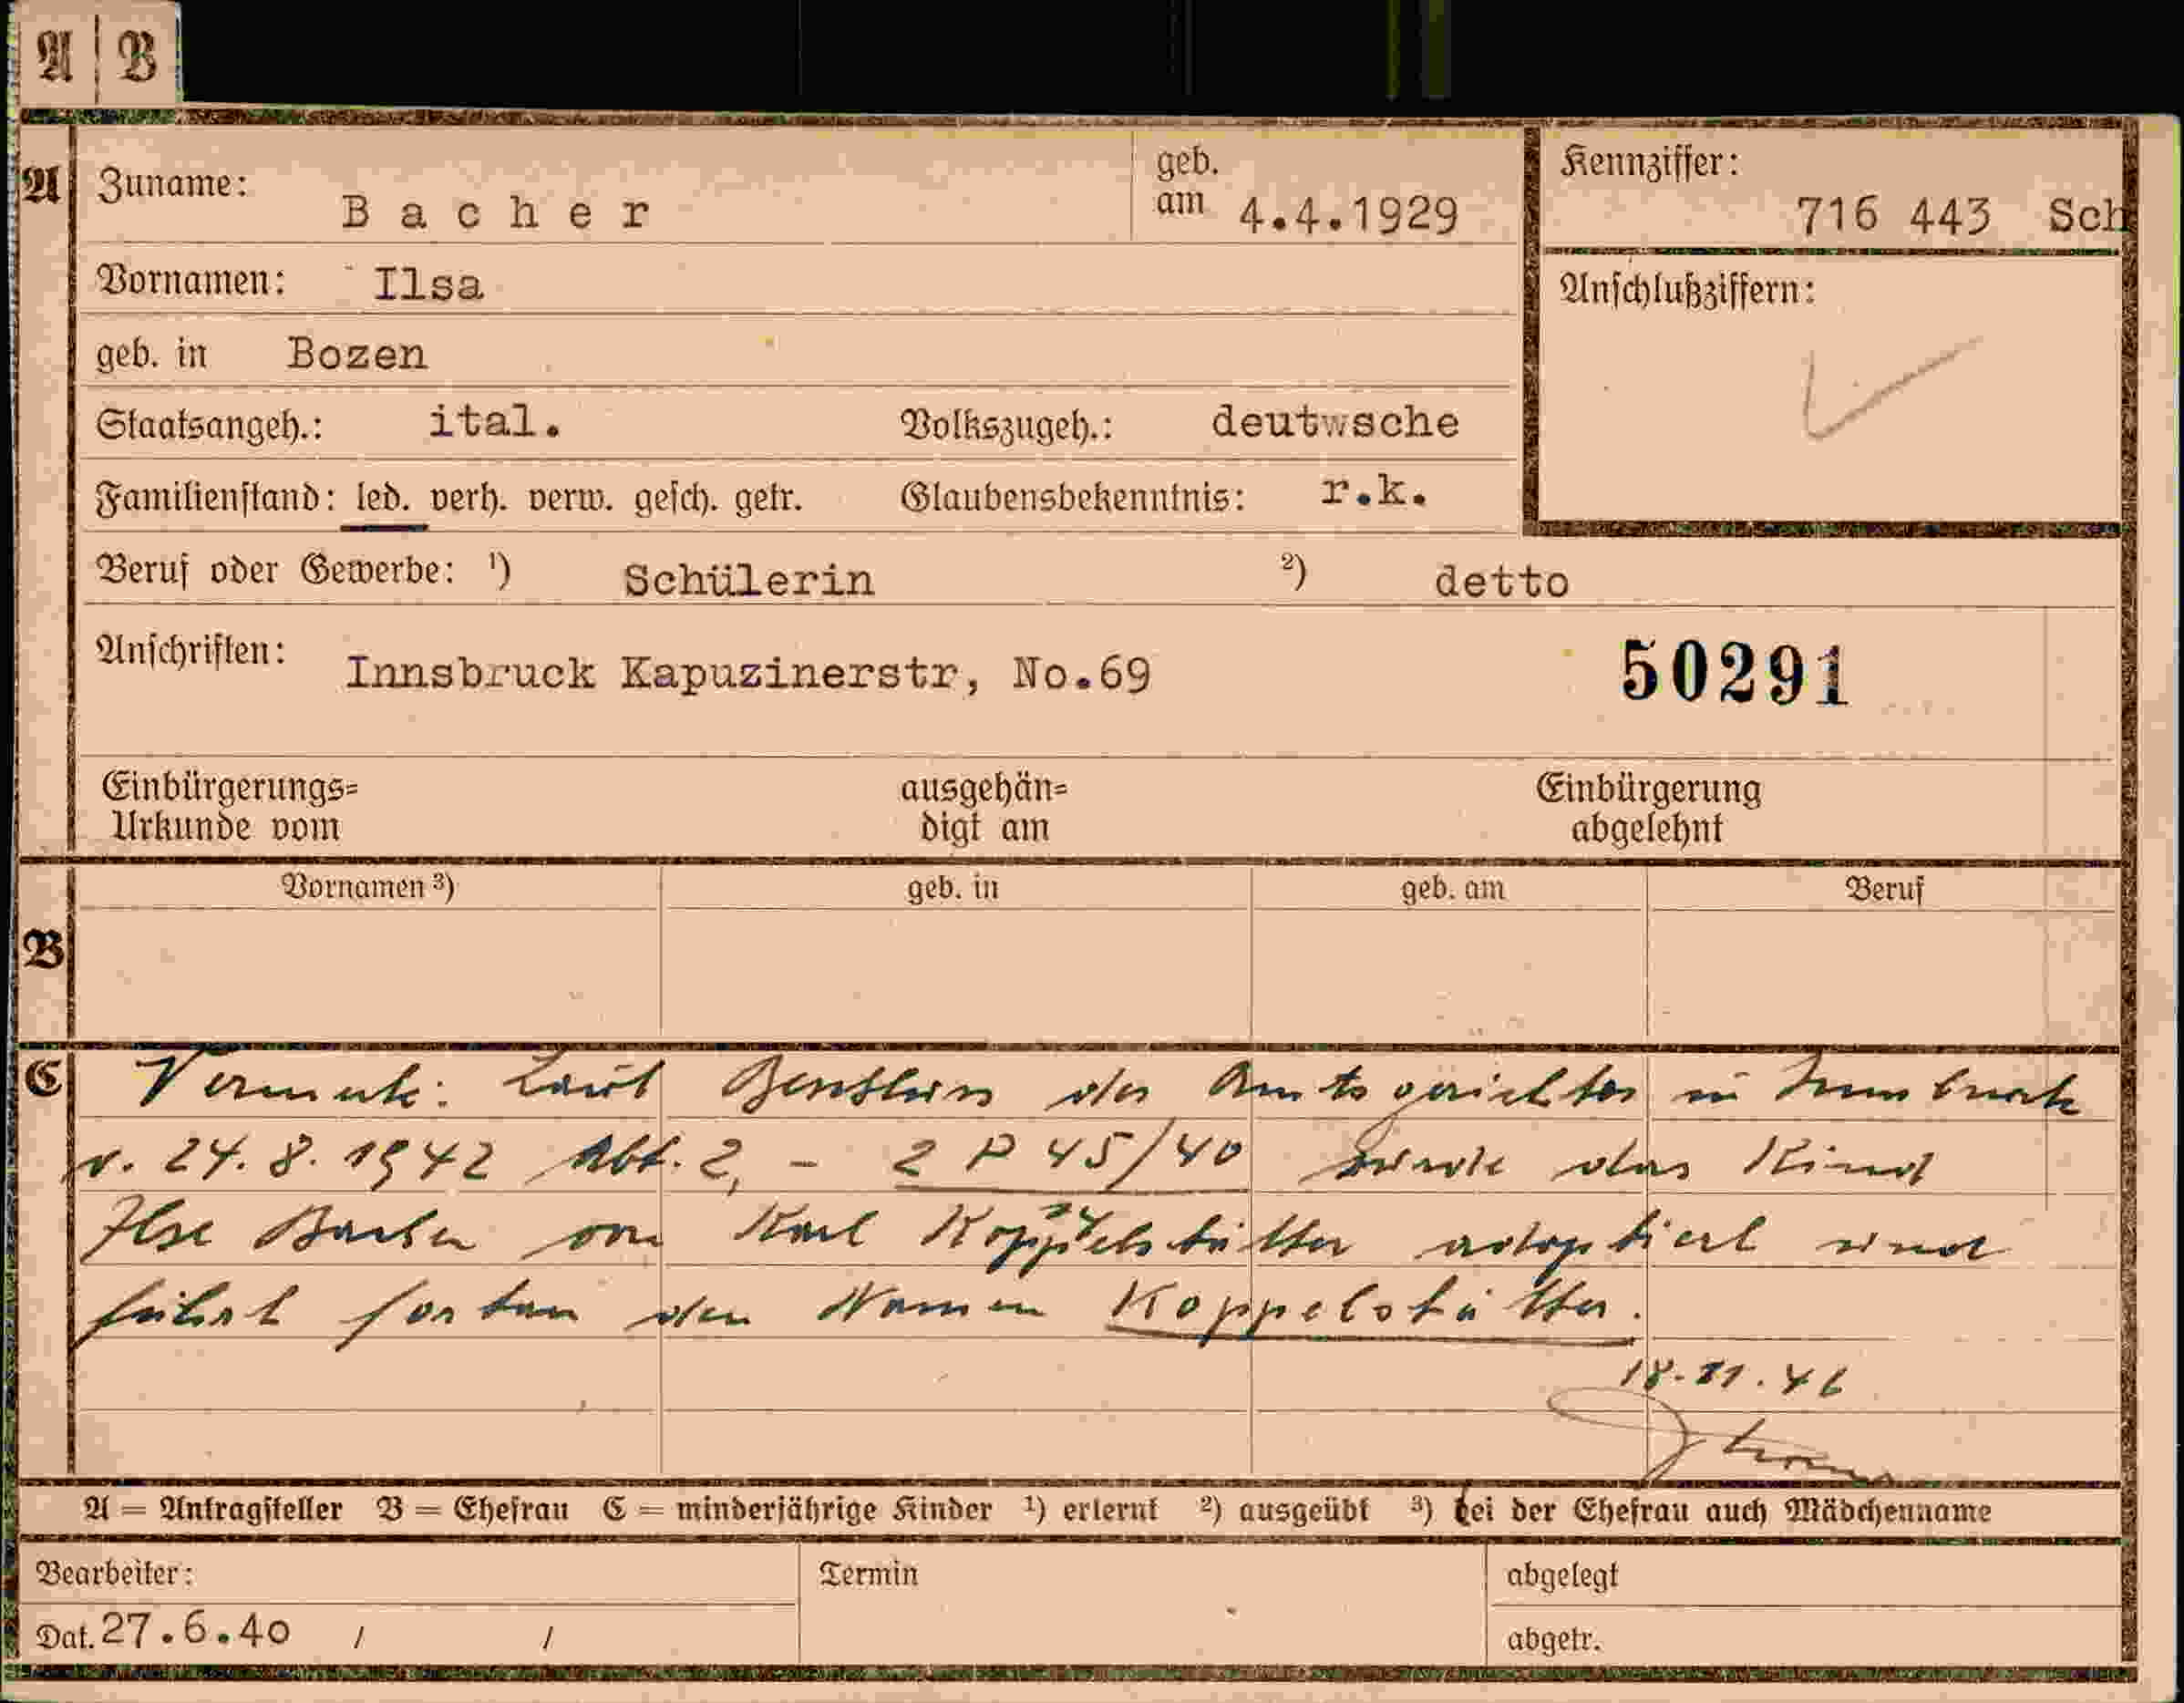 A | B
A Zuname: Bacher geb. am 4.4.1929 Kennziffer: 716 443 Sch
Vornamen: Ilsa Anschlußziffern:
geb. in Bozen
Staatsangeh.: ital. Volkszugeh.: deutwsche
Familienstand: led. verh. verw. gesch. getr. Glaubensbekenntnis: r.k.
Beruf oder Gewerbe: ¹) Schülerin ²) detto
Anschriften: Innsbruck Kapuzinerstr, No.69 50291
Einbürgerungs= ausgehän= Einbürgerung
Urkunde vom digt am abgelehnt
Vornamen ³) geb. in geb. am Beruf
B
C Vermerk: Laut Beschluss des Amtsgerichtes in Innsbruck
v. 24.8.1942 Abt. 2, - 2 P 45/40 wurde das Kind
Ilse Bacher von Karl Koppelstätter adoptiert und
führt fortan den Namen Koppelstätter.
18.11.46
A = Antragsteller B = Ehefrau C = minderjährige Kinder ¹) erlernt ²) ausgeübt ³) bei der Ehefrau auch Mädchenname
Bearbeiter: Termin abgelegt
Dat. 27.6.40 / / abgetr.